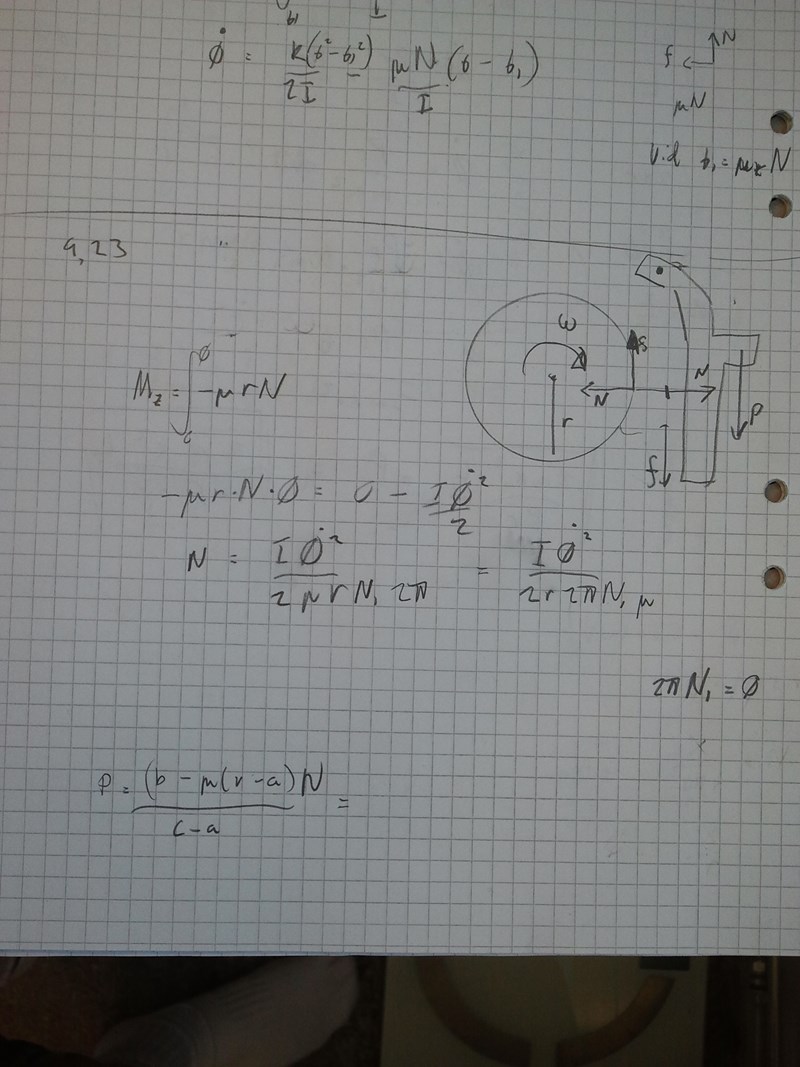 φ̇ = k(b²-b₁²)/2I μN/I (b - b₁)
f N
μN
Vid b₁ = N
9,23
ω
M_z = ∫ -μrN
N N
r f P
-μr·N·φ = 0 - Iφ̇²/2
N = Iφ̇²/2μrN₁2π = Iφ̇²/2r2πN₁μ
2πN₁ = φ
P = (b - μ(r-a)N/c-a =